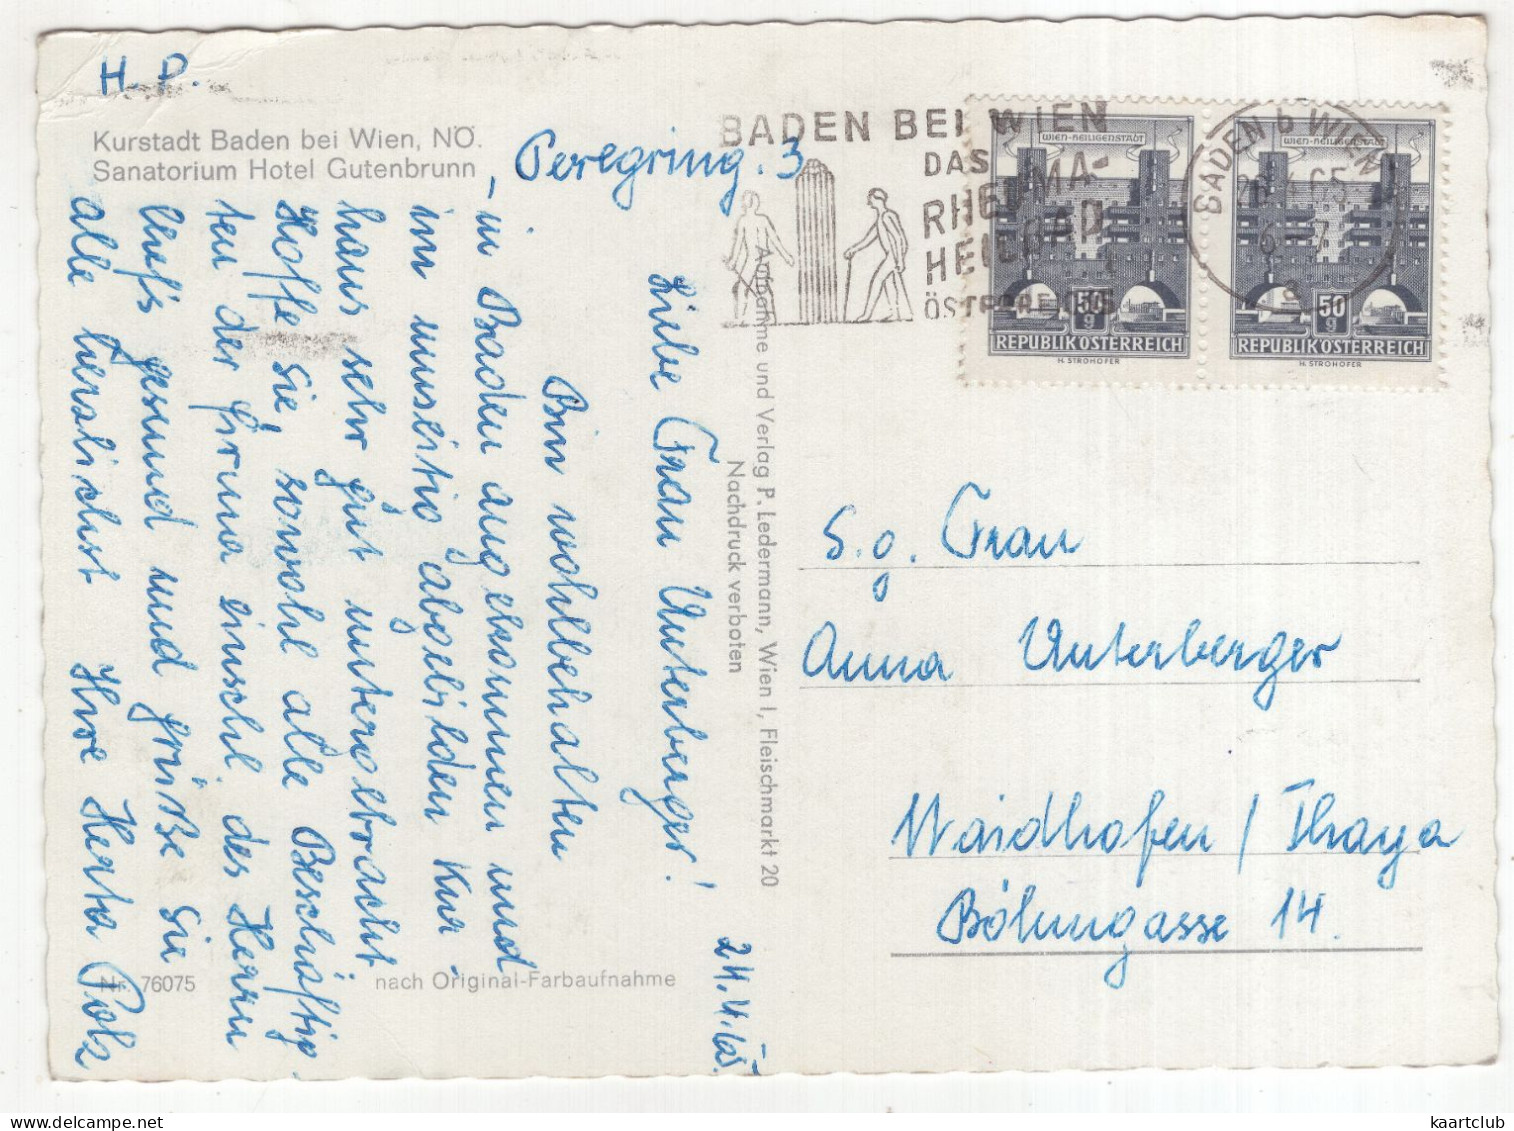 H. P.
Kurstadt Baden bei Wien, NÖ.
Sanatorium Hotel Gutenbrunn
Peregring. 3
24.4.65.
Liebe Frau Unterberger!
Bin wohlbehalten
in Baden angekommen und
im umseitig abgebildeten Kur-
haus sehr gut untergebracht.
Hoffe Sie, sowohl alle Beschäftig-
ten der Firma einschl. des Herrn
Chefs gesund und grüße Sie
alle herzlichst Ihre Herta Polz
Nr. 76075
nach Original-Farbaufnahme
Aufnahme und Verlag P. Ledermann, Wien I, Fleischmarkt 20
Nachdruck verboten
BADEN BEI WIEN
DAS
RHEUMA-
HEILBAD
ÖSTERREICHS
BADEN b WIEN
6-7
a
WIEN-HEILIGENSTADT
50 g
REPUBLIK ÖSTERREICH
H. STROHOFER
WIEN-HEILIGENSTADT
50 g
REPUBLIK ÖSTERREICH
H. STROHOFER
S. g. Frau
Anna Unterberger
Waidhofen / Thaya
Böhmgasse 14.
kaartclub